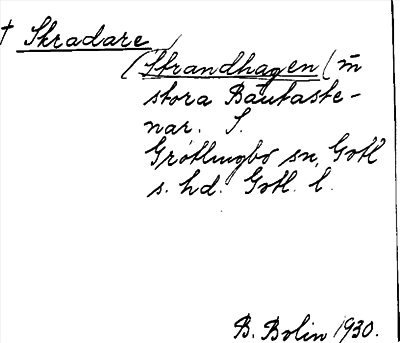 † Skradare
(Strandhagen (m̄
stora Bautaste-
nar. S.
Grötlingbo sn, Gotl
s. hd. Gotl. l.
B. Bolin 1930.